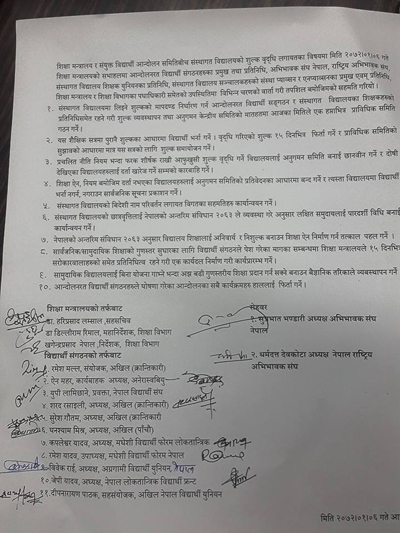 शिक्षा मन्त्रालय र संयुक्त विद्यार्थी आन्दोलन समितिबीच संस्थागत विद्यालयको शुल्क वृद्धि लगायतका विषयमा मिति २०७२।०१।०६ गते
शिक्षा मन्त्रालयको सभाहलमा आन्दोलनरत विद्यार्थी संगठनहरुका प्रमुख तथा प्रतिनिधि, अभिभावक संघ नेपाल, राष्ट्रिय अभिभावक संघ,
संस्थागत विद्यालय शिक्षक युनियनका प्रतिनिधि, संस्थागत विद्यालय सञ्चालकहरुको संस्था प्याब्सन र एनप्याब्सनका प्रमुख एवम् प्रतिनिधि,
शिक्षा मन्त्रालय र शिक्षा विभागका पदाधिकारी समेतको उपस्थितिमा विभिन्न चरणको वार्ता गरी तपशिल बमोजिमको सहमति गरियो ।
१. संस्थागत विद्यालयमा लिइने शुल्कको मापदण्ड निर्धारण गर्न आन्दोलनरत विद्यार्थी सङ्गठन र संस्थागत विद्यालयका शिक्षकहरुको
प्रतिनिधिसमेत रहने गरी शुल्क व्यवस्थापन तथा अनुगमन केन्द्रीय समितिको मातहतमा आजका मितिले एक हप्ताभित्र प्राविधिक समिति
गठन गर्ने।
२. यस शैक्षिक सत्रमा पुरानै शुल्कका आधारमा विद्यार्थी भर्ना गर्ने। वृद्धि गरिएको शुल्क १५ दिनभित्र फिर्ता गर्ने र प्राविधिक समितिको
सुझावको आधारमा मात्र यस सत्रको लागि शुल्क समायोजन गर्ने।
३. प्रचलित नीति नियम भन्दा फरक शीर्षक राखी आफूखुसी शुल्क वृद्धि गर्ने विद्यालयलाई अनुगमन समिति बनाई छानवीन गर्ने र दोषी
देखिएका विद्यालयहरुलाई दर्ता खारेज गर्ने सम्मको कारबाहि गर्ने।
४. शिक्षा ऐन, नियम बमोजिम दर्ता नभएका विद्यालयहरुलाई अनुगमन समितिको प्रतिवेदनका आधारमा बन्द गर्ने र त्यस्ता विद्यालयमा विद्यार्थी
भर्ना नगर्न, नगराउन सार्वजनिक सूचना प्रकाशन गर्ने।
५. संस्थागत विद्यालयको विदेशी नाम परिवर्तन लगायत विगतका सहमतिहरु कार्यान्वयन गर्ने।
६. संस्थागत विद्यालयको छात्रवृत्तिलाई नेपालको अन्तरिम संविधान २०६३ ले व्यवस्था गरे अनुसार लक्षित समुदायलाई पारदर्शी विधि बनाई
कार्यान्वयन गर्ने।
७. नेपालको अन्तरिम संविधान २०६३ अनुसार विद्यालय शिक्षालाई अनिवार्य र निशुल्क बनाउन शिक्षा ऐन निर्माण गर्न तत्काल पहल गर्ने ।
८. सार्वजनिक/सामुदायिक शिक्षाको गुणस्तर सुधारका लागि विद्यार्थी संगठनले पेश गरेका मागका सम्बन्धमा शिक्षा मन्त्रालयले १५ दिनभित्र
सरोकारवालाहरुको समेत प्रतिनिधित्व रहने गरी एक कार्यदल निर्माण गरी कार्यप्रारम्भ गर्ने।
९. सामुदायिक विद्यालयलाई बिना योजना गाभ्ने भन्दा अझ बढी गुणस्तरीय शिक्षा प्रदान गर्न सक्ने बनाउन बैज्ञानिक तरिकाले व्यवस्थापन गर्ने
१०. आन्दोलनरत विद्यार्थी संगठनहरुले घोषणा गरेका आन्दोलनका सबै कार्यक्रमहरु हाललाई फिर्ता गर्ने।
शिक्षा मन्त्रालयको तर्फबाट
डा. हरिप्रसाद लम्साल ,सहसचिव
डा डिल्लीराम रिमाल, महानिर्देशक, शिक्षा विभाग
खगेन्द्रप्रसाद नेपाल ,निर्देशक, शिक्षा विभाग
विद्यार्थी संगठनको तर्फबाट
१. रमेश मल्ल, संयोजक, अखिल (क्रान्तिकारी)
२. ऐन महर, कार्यबाहक अध्यक्ष, अनेरास्ववियु
३. युपी लामिछाने, प्रवक्ता, नेपाल विद्यार्थी संघ
४. शरद रसाइली, अध्यक्ष, अखिल (क्रान्तिकारी)
५. सुरेश गौतम, अध्यक्ष, अखिल (क्रान्तिकारी)
६. घनश्याम मिश्र, अध्यक्ष, अखिल (पाँचौं)
७. कपलेश्वर यादव, अध्यक्ष, मधेशी विद्यार्थी फोरम लोकतान्त्रिक
८. रमेश यादव, उपाध्यक्ष, मधेशी विद्यार्थी फोरम नेपाल
९. विवेक राई, अध्यक्ष, अग्रगामी विद्यार्थी युनियन, नेपाल
१०.जेपी यादव, अध्यक्ष, नेपाल लोकतान्त्रिक विद्यार्थी फ्रन्ट
११.दीपनारायण पाठक, सहसंयोजक, अखिल नेपाल विद्यार्थी युनियन
रोहवर
१. सुप्रभात भण्डारी अध्यक्ष अभिभावक संघ
नेपाल
२. धर्मदत्त देवकोटा अध्यक्ष नेपाल राष्ट्रिय
अभिभावक संघ
मिति २०७२/०१/०६ गते आ